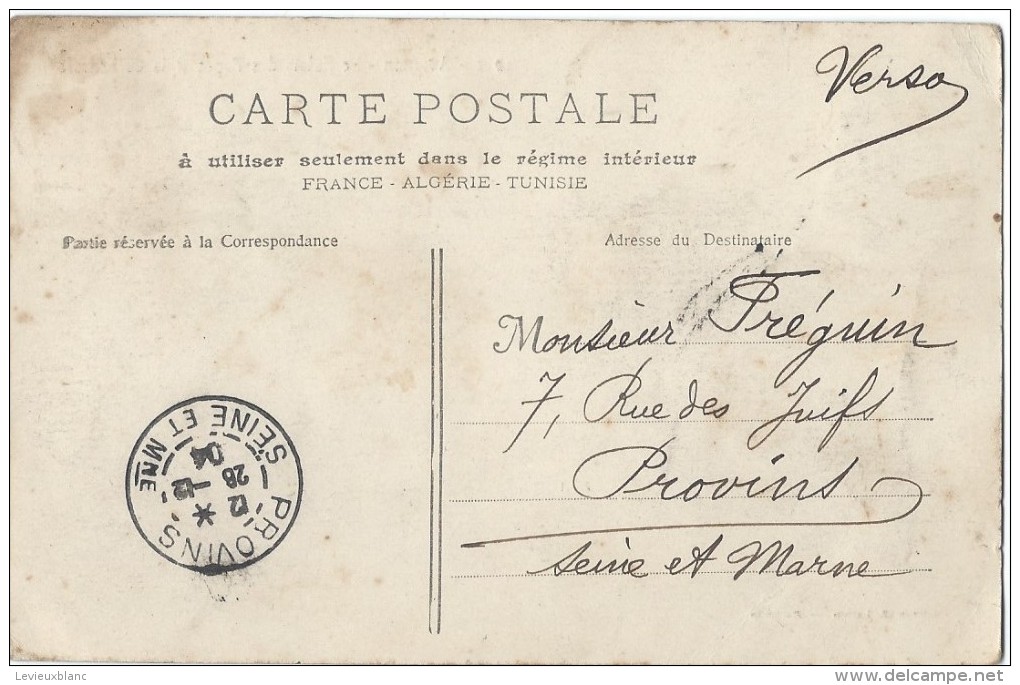 Verso
CARTE POSTALE
à utiliser seulement dans le régime intérieur
FRANCE - ALGÉRIE - TUNISIE
Partie réservée à la Correspondance
Adresse du Destinataire
Monsieur Fréguin
7, Rue des Juifs
Provins
Seine et Marne
PROVINS
SEINE ET MNE
12 *
28 - 12
04
Levieuxblanc
delcampe.net